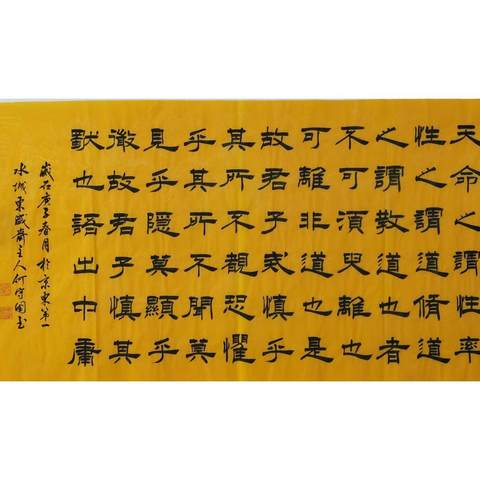 天命之謂性率
性之謂道脩道
之謂教道也者
不可須臾離也
可離非道也是
故君子戒慎乎
其所不覩恐懼
乎其所不聞莫
見乎隱莫顯乎
微故君子慎其
獨也語出中庸
歲在庚子春月於京東第一
水城東盛齋主人何守國书